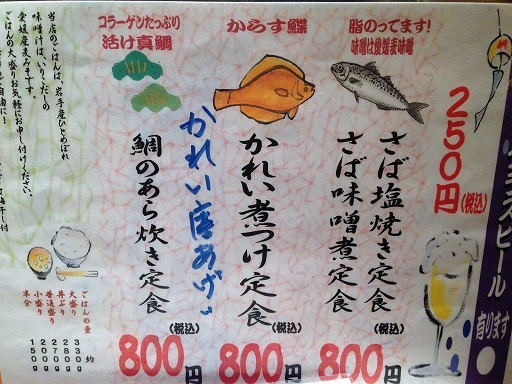 ビール
有ります
250円
(税込)
脂のってます!
味噌は愛媛麦味噌
さば塩焼き定食
さば味噌煮定食
(税込)
800円
からす鰈
かれい煮つけ定食
(税込)
800円
かれい唐あげ
コラーゲンたっぷり
活け真鯛
鯛のあら炊き定食
(税込)
800円
当店のごはんは、岩手産ひとめぼれ
味噌汁は、いりこだしの
愛媛産麦みそです。
ごはんの大盛りお気軽にお申し付ください。
ごはんの量
約
大盛り 330g
丼ぶり 270g
普通盛り 220g
小盛り 200g
半分 150g